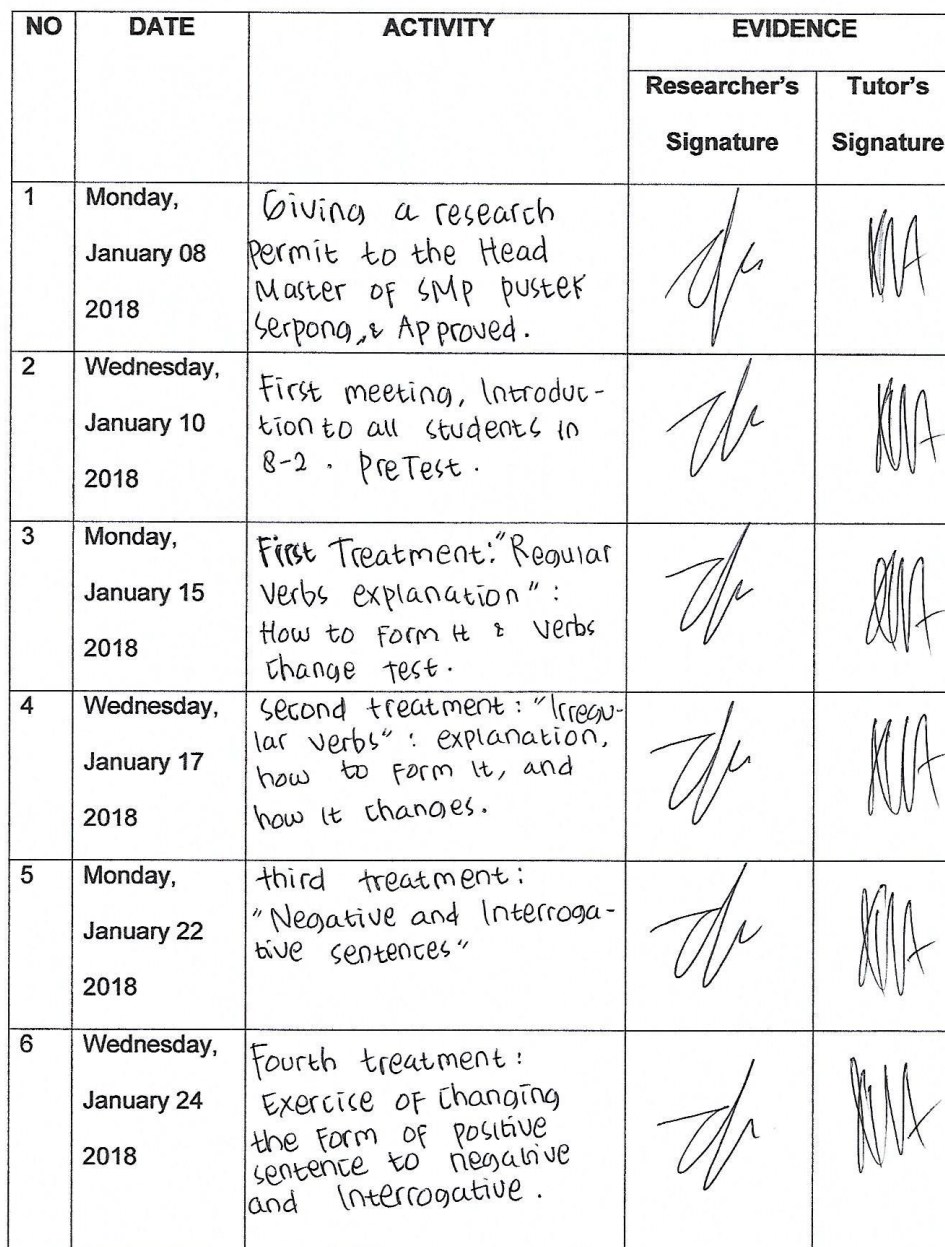 NO DATE ACTIVITY EVIDENCE
Researcher's Signature Tutor's Signature
1
Monday,
January 08
2018
Giving a research
permit to the Head
Master of SMP pustek
Serpong, & Approved.
2
Wednesday,
January 10
2018
First meeting, Introduc-
tion to all students in
8-2. PreTest.
3
Monday,
January 15
2018
First Treatment: "Regular
Verbs explanation" :
How to form it & verbs
change test.
4
Wednesday,
January 17
2018
second treatment : "Irregu-
lar verbs" : explanation,
how to form it, and
how it changes.
5
Monday,
January 22
2018
third treatment :
"Negative and Interroga-
tive sentences"
6
Wednesday,
January 24
2018
Fourth treatment :
Exercise of changing
the form of positive
sentence to negative
and Interrogative.